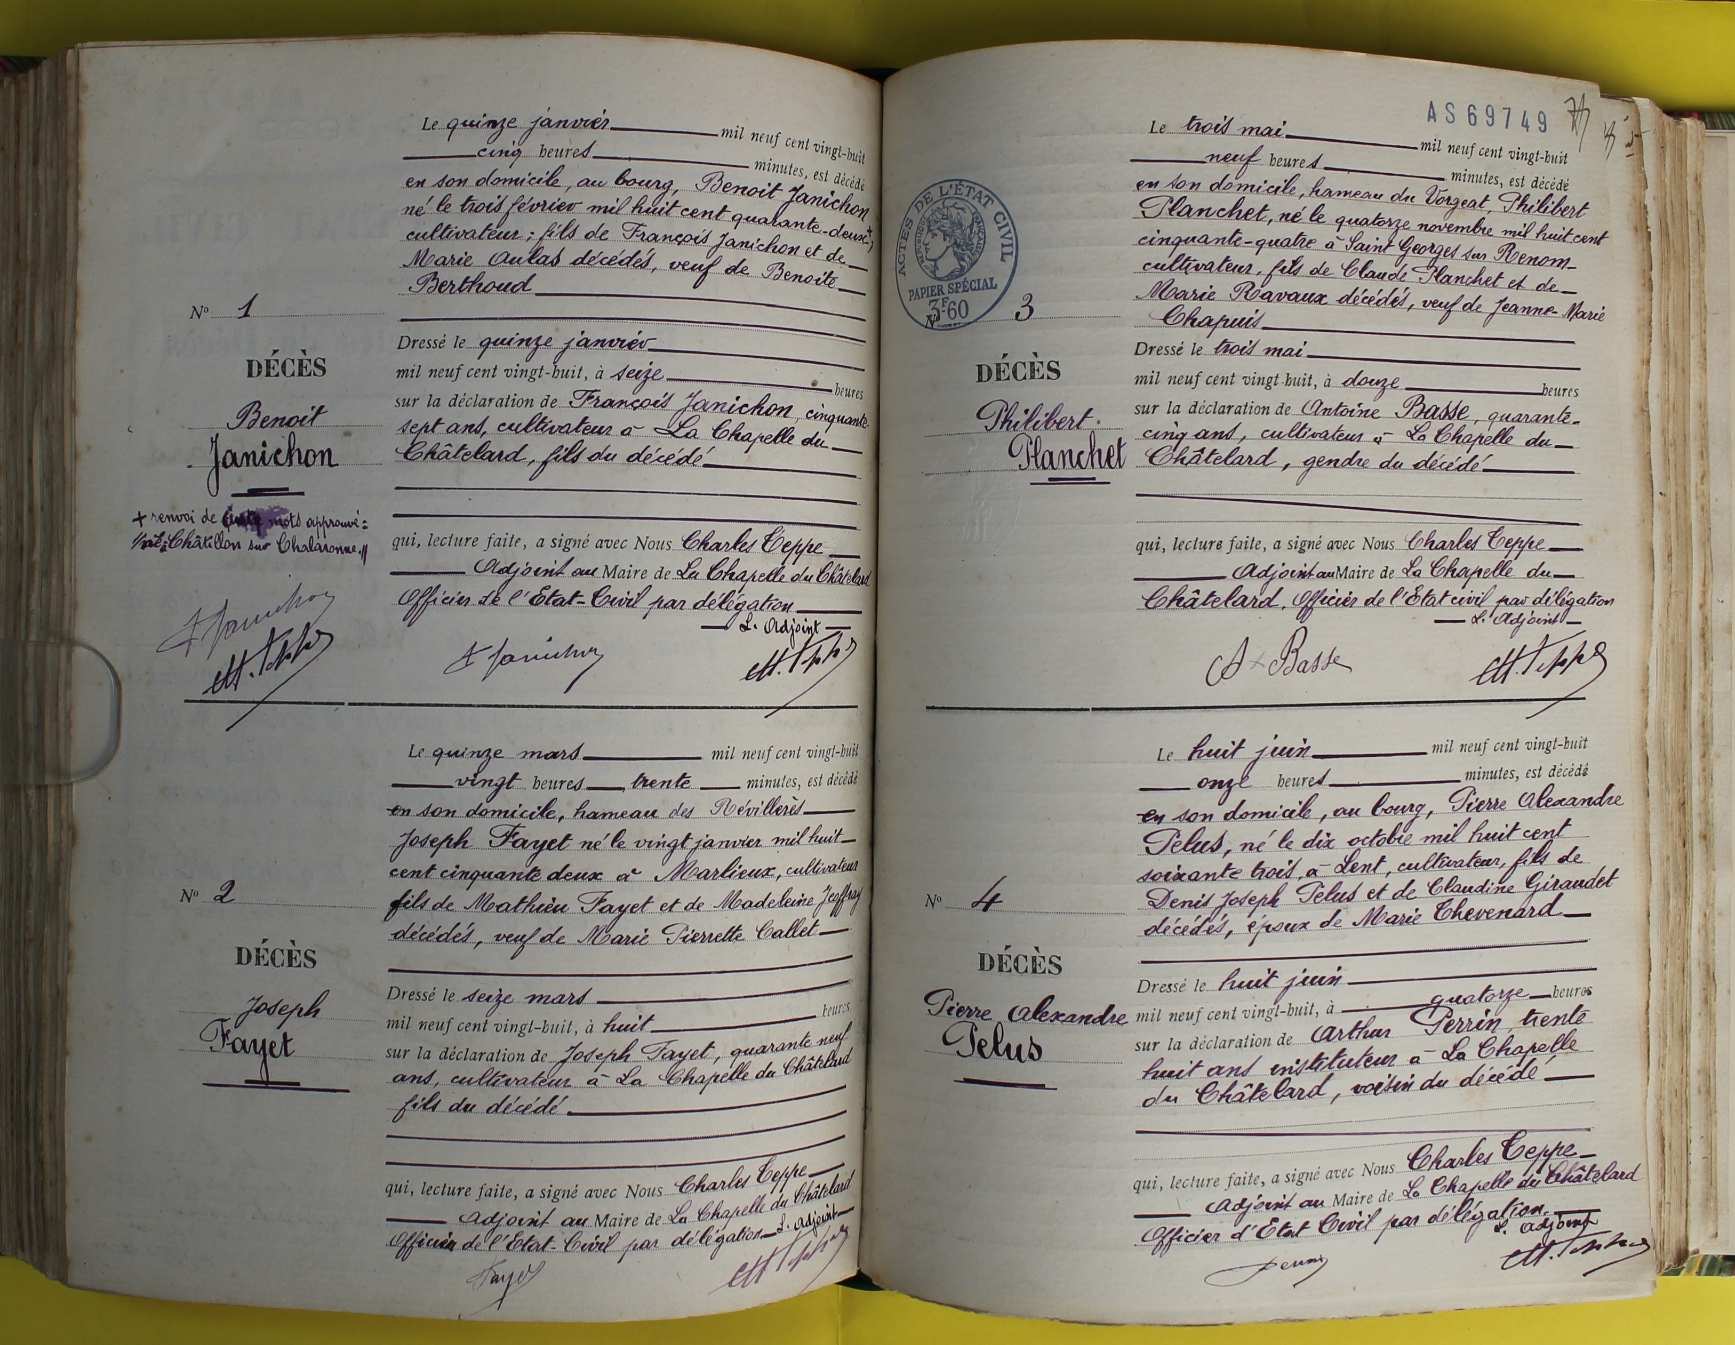 Le quinze janvier mil neuf cent vingt-huit
cinq heures minutes, est décédé
en son domicile, au bourg, Benoit Janichon
né le trois février mil huit cent quarante-deux +
cultivateur ; fils de François Janichon et de
Marie Aulas décédés, veuf de Benoite
Berthoud
N° 1
Dressé le quinze janvier
DÉCÈS
mil neuf cent vingt-huit, à seize heures
Benoit
Janichon
sur la déclaration de François Janichon, cinquante-
sept ans, cultivateur à La Chapelle du
Châtelard, fils du décédé
+ renvoi de mots approuvé :
Châtillon sur Chalaronne
qui, lecture faite, a signé avec Nous Charles Teppe
Adjoint au Maire de La Chapelle du Châtelard
Officier de l'Etat-Civil par délégation
L'Adjoint
Janichon
Ch. Teppe
Janichon
Ch. Teppe
Le quinze mars mil neuf cent vingt-huit
vingt heures trente minutes, est décédé
en son domicile, hameau des Révillerès
Joseph Fayet né le vingt janvier mil huit
cent cinquante deux à Marlieux, cultivateur
fils de Mathieu Fayet et de Madeleine Jeoffray
décédés, veuf de Marie Pierrette Callet
N° 2
DÉCÈS
Joseph
Fayet
Dressé le seize mars
mil neuf cent vingt-huit, à huit heures
sur la déclaration de Joseph Fayet, quarante neuf
ans, cultivateur à La Chapelle du Châtelard
fils du décédé
qui, lecture faite, a signé avec Nous Charles Teppe
Adjoint au Maire de La Chapelle du Châtelard
Officier de l'Etat-Civil par délégation L'Adjoint
Fayet
Ch. Teppe
AS69749
ACTES DE L'ÉTAT CIVIL
PAPIER SPÉCIAL
3F60
Le trois mai mil neuf cent vingt-huit
neuf heures minutes, est décédé
en son domicile, hameau du Vorgeat, Philibert
Planchet, né le quatorze novembre mil huit cent
cinquante-quatre à Saint Georges sur Renom
cultivateur, fils de Claude Planchet et de
Marie Ravaux décédés, veuf de Jeanne-Marie
Chapuis
N° 3
DÉCÈS
Philibert
Planchet
Dressé le trois mai
mil neuf cent vingt-huit, à douze heures
sur la déclaration de Antoine Basse, quarante-
cinq ans, cultivateur à La Chapelle du
Châtelard, gendre du décédé
qui, lecture faite, a signé avec Nous Charles Teppe
Adjoint au Maire de La Chapelle du
Châtelard. Officier de l'Etat civil par délégation
L'Adjoint
A Basse
Ch. Teppe
Le huit juin mil neuf cent vingt-huit
onze heures minutes, est décédé
en son domicile, au bourg, Pierre Alexandre
Pelus, né le dix octobre mil huit cent
soixante trois, à Lent, cultivateur, fils de
Denis Joseph Pelus et de Claudine Giraudet
décédés, époux de Marie Thevenard
N° 4
DÉCÈS
Pierre Alexandre
Pelus
Dressé le huit juin
mil neuf cent vingt-huit, à quatorze heures
sur la déclaration de Arthur Perrin, trente
huit ans instituteur à La Chapelle
du Châtelard, voisin du décédé
qui, lecture faite, a signé avec Nous Charles Teppe
Adjoint au Maire de La Chapelle du Châtelard
Officier d'Etat Civil par délégation.
L'Adjoint
Perrin
Ch. Teppe